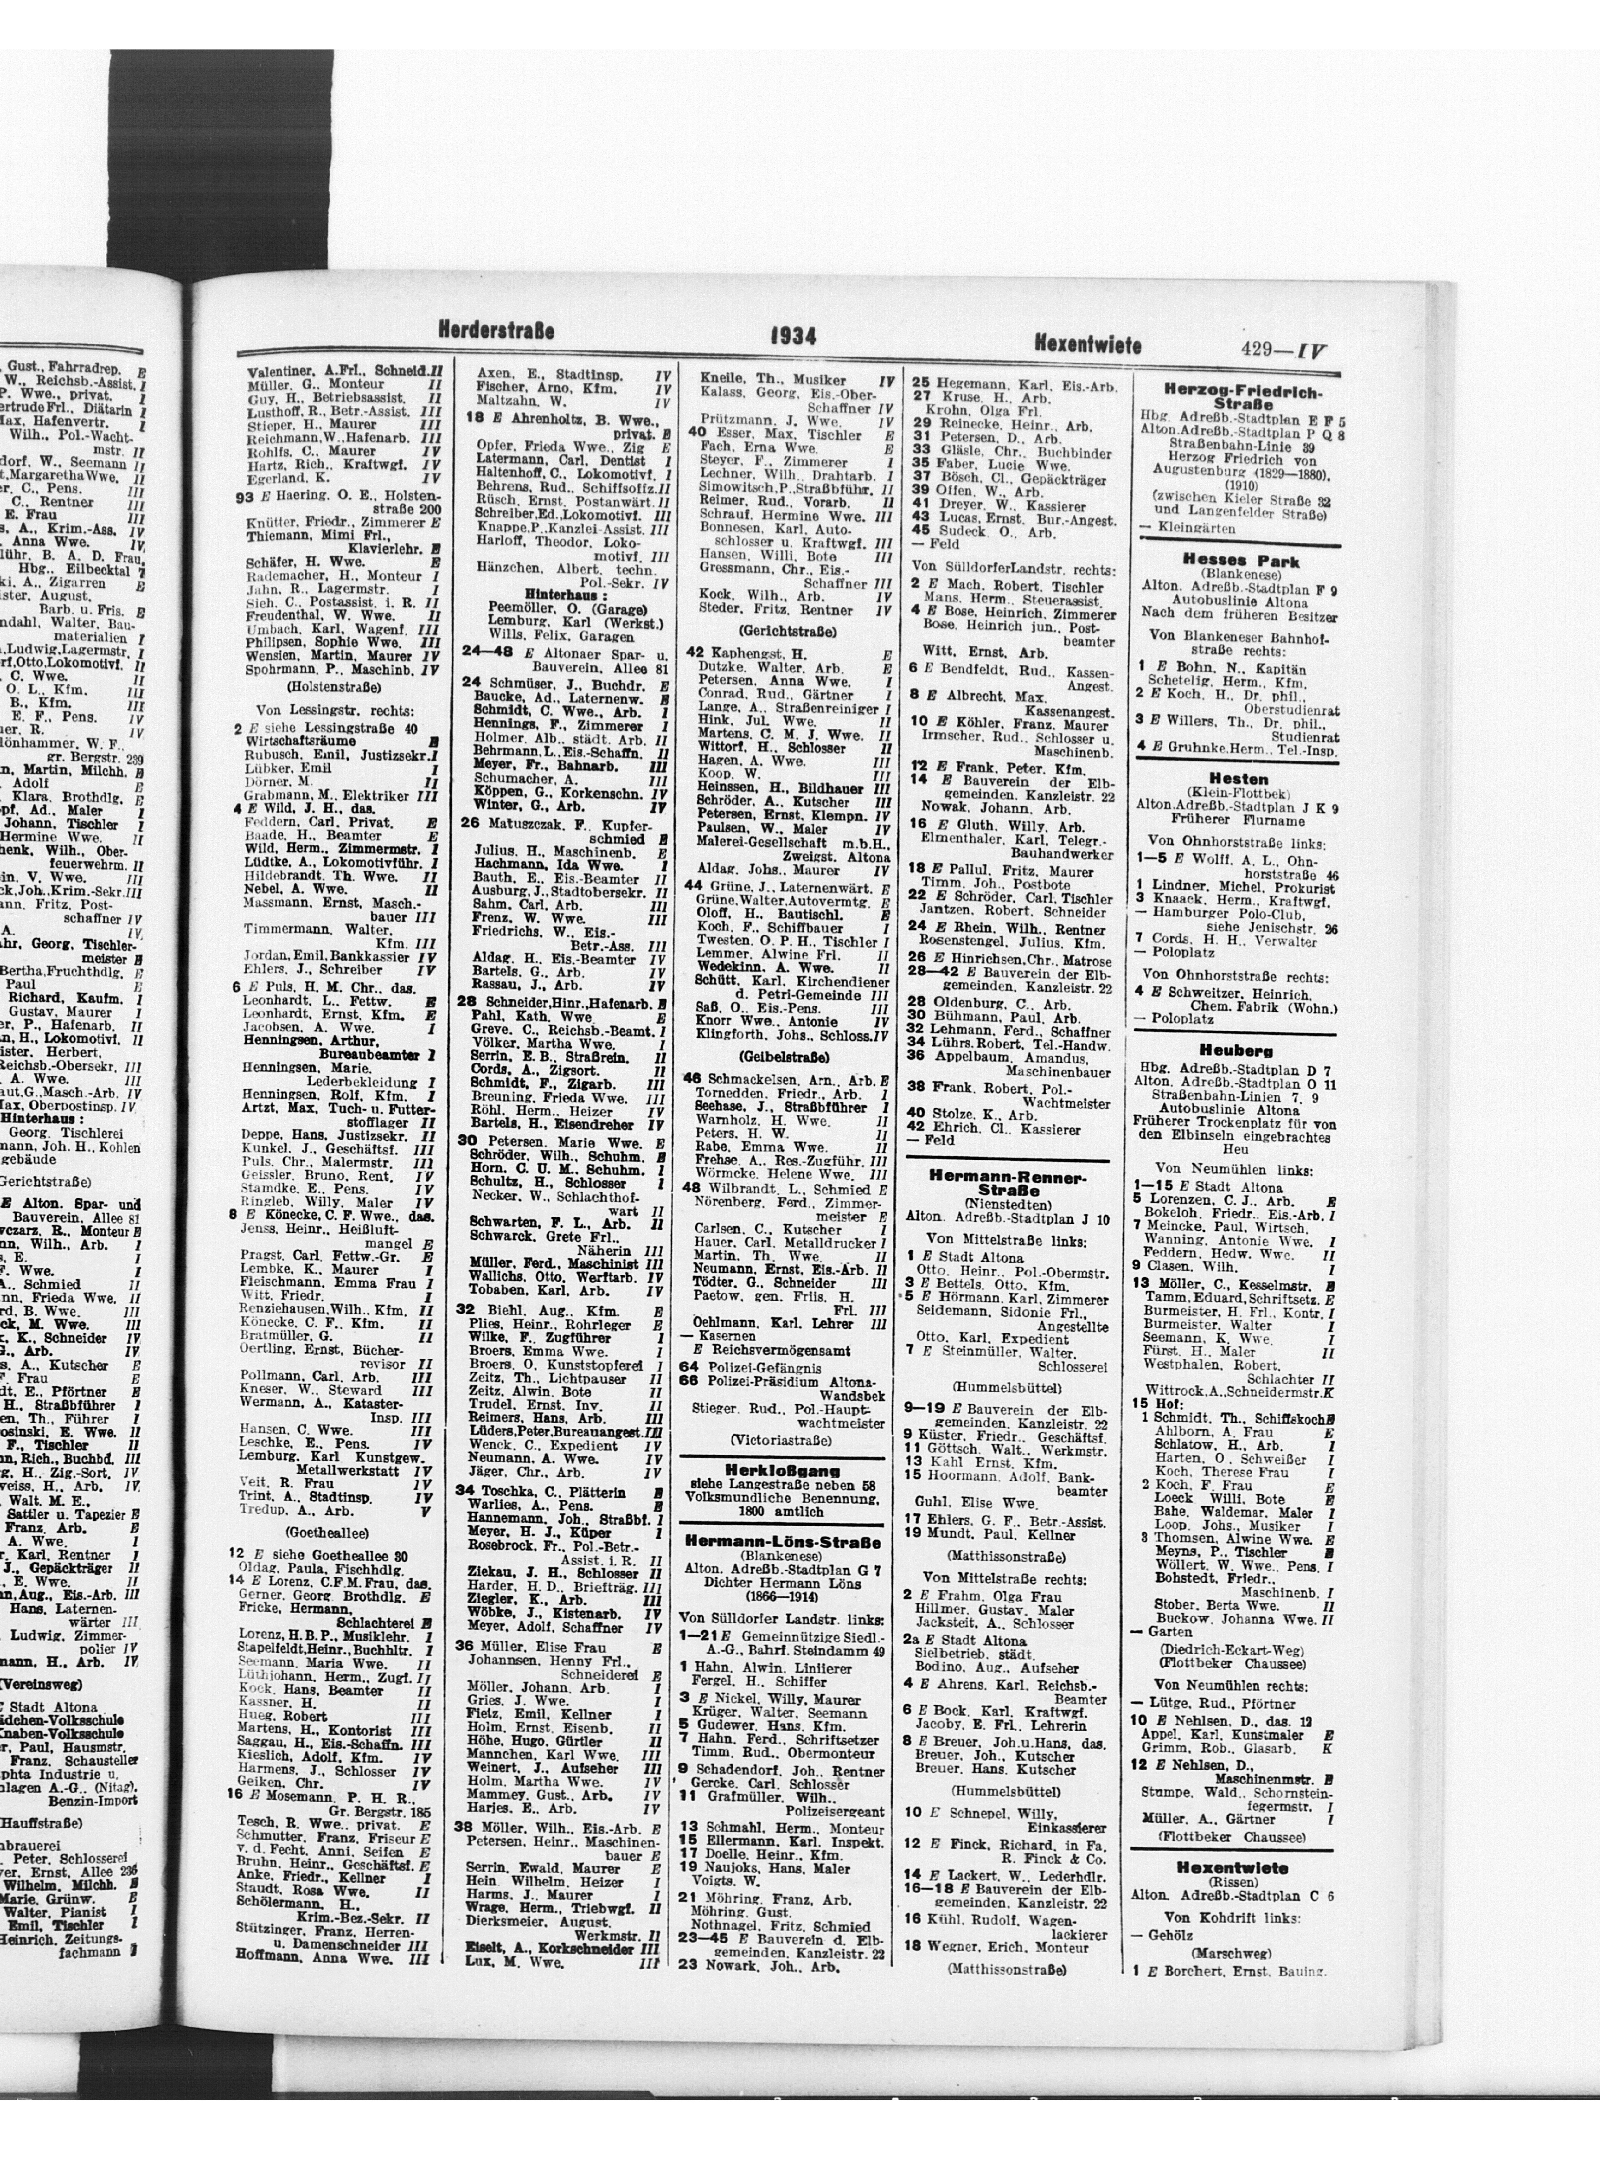 Gust., Fahrradrep. E
W., Reichsb.-Assist. I
P. Wwe., privat. I
ertrude Frl., Diätarin I
Max, Hafenvertr. I
Wilh., Pol.-Wacht-
mstr. II
dorf, W., Seemann II
t, Margaretha Wwe. II
er, C., Pens. III
C., Rentner III
E. Frau III
s, A., Krim.-Ass. IV
Anna Wwe. IV
lühr, B. A. D. Frau,
Hbg., Eilbecktal 7
ki, A., Zigarren E
ister, August,
Barb. u. Fris. E
ndahl, Walter, Bau-
materialien I
Ludwig, Lagermstr. I
rf, Otto, Lokomotivf. II
C. Wwe. II
O. L., Kfm. III
B., Kfm. III
E. F., Pens. IV
er, R. IV
lönhammer, W. F.,
gr. Bergstr. 239
n, Martin, Milchh. E
Adolf E
Klara, Brothdlg. E
pf, Ad., Maler I
Johann, Tischler I
Hermine Wwe. II
henk, Wilh., Ober-
feuerwehrm. II
in, V. Wwe. III
ck, Joh., Krim.-Sekr. III
ann, Fritz, Post-
schaffner IV
A. IV
ahr, Georg, Tischler-
meister E
Bertha, Fruchthdlg. E
Paul E
Richard, Kaufm. I
Gustav, Maurer I
er, P., Hafenarb. II
n, H., Lokomotivf. II
ister, Herbert,
Reichsb.-Obersekr. III
A. Wwe. III
aut, G., Masch.-Arb. IV
Max, Oberpostinsp. IV
Hinterhaus:
Georg, Tischlerei
mann, Joh. H., Kohlen
gebäude
Gerichtstraße)
E Alton. Spar- und
Bauverein, Allee 81
wczarz, R., Monteur E
nn, Wilh., Arb. I
s, E. I
F. Wwe. I
A., Schmied II
nn, Frieda Wwe. II
rd, B. Wwe. III
ck, M. Wwe. III
k, K., Schneider IV
G., Arb. IV
s, A., Kutscher E
F. Frau E
dt, E., Pförtner E
H., Straßbführer I
en, Th., Führer I
rosinski, E. Wwe. II
F., Tischler II
nn, Rich., Buchbd. III
g, H., Zig.-Sort. IV
weiss, H., Arb. IV
Walt. M. E.,
Sattler u. Tapezier E
Franz, Arb. E
A. Wwe. I
r, Karl, Rentner I
J., Gepäckträger II
, E. Wwe. II
nn, Aug., Eis.-Arb. III
Hans, Laternen-
wärter III
Ludwig, Zimmer-
polier IV
mann, H., Arb. IV
(Vereinsweg)
E Stadt Altona
ädchen-Volksschule
Knaben-Volksschule
r, Paul, Hausmstr.
Franz, Schausteller
phta Industrie u.
nlagen A.-G., (Nitag),
Benzin-Import
(Hauffstraße)
nbrauerei
Peter, Schlosserei
yer, Ernst, Allee 236
Wilhelm, Milchh. E
Marie, Grünw. E
Walter, Pianist I
Emil, Tischler I
Heinrich, Zeitungs-
fachmann I
Herderstraße 1934 Hexentwiete 429—IV
Valentiner, A. Frl., Schneid. II
Müller, G., Monteur II
Guy, H., Betriebsassist. II
Lusthoff, R., Betr.-Assist. III
Stieper, H., Maurer III
Reichmann, W., Hafenarb. III
Rohlfs, C., Maurer IV
Hartz, Rich., Kraftwgf. IV
Egerland, K. IV
93 E Haering, O. E., Holsten-
straße 200
Knütter, Friedr., Zimmerer E
Thiemann, Mimi Frl.,
Klavierlehr. E
Schäfer, H. Wwe. E
Rademacher, H., Monteur I
Jahn, R., Lagermstr. I
Sieh, C., Postassist. i. R. II
Freudenthal, W. Wwe. II
Umbach, Karl, Wagenf. III
Philipsen, Sophie Wwe. III
Wensien, Martin, Maurer IV
Spohrmann, P., Maschinb. IV
(Holstenstraße)
Von Lessingstr. rechts:
2 E siehe Lessingstraße 40
Wirtschaftsräume E
Rubusch, Emil, Justizsekr. I
Lübker, Emil I
Dörner, M. II
Grabmann, M., Elektriker III
4 E Wild, J. H., das.
Feddern, Carl, Privat. E
Baade, H., Beamter E
Wild, Herm., Zimmermstr. I
Lüdtke, A., Lokomotivführ. I
Hildebrandt, Th. Wwe. II
Nebel, A. Wwe. II
Massmann, Ernst, Masch.-
bauer III
Timmermann, Walter,
Kfm. III
Jordan, Emil, Bankkassier IV
Ehlers, J., Schreiber IV
6 E Puls, H. M. Chr., das.
Leonhardt, L., Fettw. E
Leonhardt, Ernst, Kfm. E
Jacobsen, A. Wwe. I
Henningsen, Arthur,
Bureaubeamter I
Henningsen, Marie,
Lederbekleidung I
Henningsen, Rolf, Kfm. I
Artzt, Max, Tuch- u. Futter-
stofflager II
Deppe, Hans, Justizsekr. II
Kunkel, J., Geschäftsf. III
Puls, Chr., Malermstr. III
Geissler, Bruno, Rent. IV
Stamdke, E., Pens. IV
Ringleb, Willy, Maler IV
8 E Könecke, C. F. Wwe., das.
Jenss, Heinr., Heißluft-
mangel E
Pragst, Carl, Fettw.-Gr. E
Lembke, K., Maurer I
Fleischmann, Emma Frau I
Witt, Friedr. I
Renziehausen, Wilh., Kfm. II
Könecke, C. F., Kfm. II
Bratmüller, G. II
Oertling, Ernst, Bücher-
revisor II
Pollmann, Carl, Arb. III
Kneser, W., Steward III
Wermann, A., Kataster-
Insp. III
Hansen, C. Wwe. III
Leschke, E., Pens. IV
Lemburg, Karl Kunstgew.
Metallwerkstatt IV
Veit, R. Frau IV
Trint, A., Stadtinsp. IV
Tredup, A., Arb. V
(Goetheallee)
12 E siehe Goetheallee 30
Oldag, Paula, Fischhdlg.
14 E Lorenz, C. F. M. Frau, das.
Gerner, Georg, Brothdlg. E
Fricke, Hermann,
Schlachterei E
Lorenz, H. B. P., Musiklehr. I
Stapelfeldt, Heinr., Buchhltr. I
Seemann, Maria Wwe. II
Lüthjohann, Herm., Zugf. II
Kock, Hans, Beamter II
Kassner, H. II
Hueg, Robert III
Martens, H., Kontorist III
Saggau, H., Eis.-Schaffn. III
Kieslich, Adolf, Kfm. IV
Harmens, J., Schlosser IV
Geiken, Chr. IV
16 E Mosemann, P. H. R.,
Gr. Bergstr. 185
Tesch, R. Wwe., privat. E
Schmutter, Franz, Friseur E
v. d. Fecht, Anni, Seifen E
Bruhn, Heinr., Geschäftsf. E
Anke, Friedr., Kellner I
Staudt, Rosa Wwe. II
Schölermann, H.,
Krim.-Bez.-Sekr. II
Stützinger, Franz, Herren-
u. Damenschneider III
Hoffmann, Anna Wwe. III
Axen, E., Stadtinsp. IV
Fischer, Arno, Kfm. IV
Maltzahn, W. IV
18 E Ahrenholtz, B. Wwe.,
privat. E
Opfer, Frieda Wwe., Zig E
Latermann, Carl, Dentist I
Haltenhoff, C., Lokomotivf. I
Behrens, Rud., Schiffsoffiz. II
Rüsch, Ernst, Postanwärt. II
Schreiber, Ed., Lokomotivf. III
Knappe, P., Kanzlei-Assist. III
Harloff, Theodor, Loko-
motivf. III
Hänzchen, Albert, techn.
Pol.-Sekr. IV
Hinterhaus:
Peemöller, O. (Garage)
Lemburg, Karl (Werkst.)
Wills, Felix, Garagen
24—48 E Altonaer Spar- u.
Bauverein, Allee 81
24 Schmüser, J., Buchdr. E
Baucke, Ad., Laternenw. E
Schmidt, C. Wwe., Arb. I
Hennings, F., Zimmerer I
Holmer, Alb., städt. Arb. II
Behrmann, L., Eis.-Schaffn. II
Meyer, Fr., Bahnarb. III
Schumacher, A. III
Köppen, G., Korkenschn. IV
Winter, G., Arb. IV
26 Matuszczak, F., Kupfer-
schmied E
Julius, H., Maschinenb. E
Hachmann, Ida Wwe. I
Bauth, E., Eis.-Beamter II
Ausburg, J., Stadtobersekr. II
Sahm, Carl, Arb. III
Frenz, W. Wwe. III
Friedrichs, W., Eis.-
Betr.-Ass. III
Aldag, H., Eis.-Beamter IV
Bartels, G., Arb. IV
Rassau, J., Arb. IV
28 Schneider, Hinr., Hafenarb. E
Pahl, Kath. Wwe. E
Greve, C., Reichsb.-Beamt. I
Völker, Martha Wwe. I
Serrin, E. B., Straßrein. II
Cords, A., Zigsort. II
Schmidt, F., Zigarb. III
Breuning, Frieda Wwe. III
Röhl, Herm., Heizer IV
Bartels, H., Eisendreher IV
30 Petersen, Marie Wwe. E
Schröder, Wilh., Schuhm. E
Horn, C. U. M., Schuhm. I
Schultz, H., Schlosser I
Necker, W., Schlachthof-
wart II
Schwarten, F. L., Arb. II
Schwarck, Grete Frl.,
Näherin III
Müller, Ferd., Maschinist III
Wallichs, Otto, Werftarb. IV
Tobaben, Karl, Arb. IV
32 Biehl, Aug., Kfm. E
Plies, Heinr., Rohrleger E
Wilke, F., Zugführer I
Broers, Emma Wwe. I
Broers, O., Kunststopferei I
Zeitz, Th., Lichtpauser II
Zeitz, Alwin, Bote II
Trudel, Ernst, Inv. II
Reimers, Hans, Arb. III
Lüders, Peter, Bureauangest. III
Wenck, C., Expedient IV
Neumann, A. Wwe. IV
Jäger, Chr., Arb. IV
34 Toschka, C., Plätterin E
Warlies, A., Pens. E
Hannemann, Joh., Straßbf. I
Meyer, H. J., Küper I
Rosebrock, Fr., Pol.-Betr.-
Assist. i. R. II
Ziekau, J. H., Schlosser II
Harder, H. D., Briefträg. III
Ziegler, K., Arb. III
Wöbke, J., Kistenarb. IV
Meyer, Adolf, Schaffner IV
36 Müller, Elise Frau E
Johannsen, Henny Frl.,
Schneiderei E
Möller, Johann, Arb. I
Gries, J. Wwe. I
Fietz, Emil, Kellner I
Holm, Ernst, Eisenb. II
Höhe, Hugo, Gürtler II
Mannchen, Karl Wwe. III
Weinert, J., Aufseher III
Holm, Martha Wwe. IV
Mammey, Gust., Arb. IV
Harjes, E., Arb. IV
38 Möller, Wilh., Eis.-Arb. E
Petersen, Heinr., Maschinen-
bauer E
Serrin, Ewald, Maurer E
Hein, Wilhelm, Heizer I
Harms, J., Maurer I
Wrage, Herm., Triebwgf. II
Dierksmeier, August,
Werkmstr. II
Eiselt, A., Korkschneider III
Lux, M. Wwe. III
Kneile, Th., Musiker IV
Kalass, Georg, Eis.-Ober-
Schaffner IV
Prützmann, J. Wwe. IV
40 Esser, Max, Tischler E
Fach, Erna Wwe. E
Steyer, F., Zimmerer I
Lechner, Wilh., Drahtarb. I
Simowitsch, P., Straßbführ. II
Reimer, Rud., Vorarb. II
Schrauf, Hermine Wwe. III
Bonnesen, Karl, Auto-
schlosser u. Kraftwgf. III
Hansen, Willi, Bote III
Gressmann, Chr., Eis.-
Schaffner III
Kock, Wilh., Arb. IV
Steder, Fritz, Rentner IV
(Gerichtstraße)
42 Kaphengst, H. E
Dutzke, Walter, Arb. E
Petersen, Anna Wwe. I
Conrad, Rud., Gärtner I
Lange, A., Straßenreiniger I
Hink, Jul. Wwe. II
Martens, C. M. J. Wwe. II
Wittorf, H., Schlosser II
Hagen, A. Wwe. III
Koop, W. III
Heinssen, H., Bildhauer III
Schröder, A., Kutscher III
Petersen, Ernst, Klempn. IV
Paulsen, W., Maler IV
Malerei-Gesellschaft m.b.H.,
Zweigst. Altona
Aldag, Johs., Maurer IV
44 Grüne, J., Laternenwärt. E
Grüne, Walter, Autovermtg. E
Oloff, H., Bautischl. E
Koch, F., Schiffbauer I
Twesten, O. P. H., Tischler I
Lemmer, Alwine Frl. II
Wedekinn, A. Wwe. II
Schütt, Karl, Kirchendiener
d. Petri-Gemeinde III
Saß, O., Eis.-Pens. III
Knorr Wwe., Antonie IV
Klingforth, Johs., Schloss. IV
(Geibelstraße)
46 Schmackelsen, Arn., Arb. E
Tornedden, Friedr., Arb. I
Seehase, J., Straßbführer I
Warnholz, H. Wwe. II
Peters, H. W. II
Rabe, Emma Wwe. II
Frehse, A., Res.-Zugführ. III
Wörmcke, Helene Wwe. III
48 Wilbrandt, L., Schmied E
Nörenberg, Ferd., Zimmer-
meister E
Carlsen, C., Kutscher I
Hauer, Carl, Metalldrucker I
Martin, Th. Wwe. II
Neumann, Ernst, Eis.-Arb. II
Tödter, G., Schneider III
Paetow, gen. Frlis, H.
Frl. III
Oehlmann, Karl, Lehrer III
— Kasernen
E Reichsvermögensamt
64 Polizei-Gefängnis
66 Polizei-Präsidium Altona-
Wandsbek
Stieger, Rud., Pol.-Haupt-
wachtmeister
(Victoriastraße)
Herkloßgang
siehe Langestraße neben 58
Volksmundliche Benennung,
1800 amtlich
Hermann-Löns-Straße
(Blankenese)
Alton. Adreßb.-Stadtplan G 7
Dichter Hermann Löns
(1866—1914)
Von Sülldorfer Landstr. links:
1—21 E Gemeinnützige Siedl.-
A.-G., Bahrf. Steindamm 49
1 Hahn, Alwin, Liniierer
Fergel, H., Schiffer
3 E Nickel, Willy, Maurer
Krüger, Walter, Seemann
5 Gudewer, Hans, Kfm.
7 Hahn, Ferd., Schriftsetzer
Timm, Rud., Obermonteur
9 Schadendorf, Joh., Rentner
Gercke, Carl, Schlosser
11 Grafmüller, Wilh.,
Polizeisergeant
13 Schmahl, Herm., Monteur
15 Ellermann, Karl, Inspekt.
17 Doelle, Heinr., Kfm.
19 Naujoks, Hans, Maler
Voigts, W.
21 Möhring, Franz, Arb.
Möhring, Gust.
Nothnagel, Fritz, Schmied
23—45 E Bauverein d. Elb-
gemeinden, Kanzleistr. 22
23 Nowark, Joh., Arb.
25 Hegemann, Karl, Eis.-Arb.
27 Kruse, H., Arb.
Krohn, Olga Frl.
29 Reinecke, Heinr., Arb.
31 Petersen, D., Arb.
33 Gläsle, Chr., Buchbinder
35 Faber, Lucie Wwe.
37 Bösch, Cl., Gepäckträger
39 Offen, W., Arb.
41 Dreyer, W., Kassierer
43 Lucas, Ernst, Bur.-Angest.
45 Sudeck, O., Arb.
— Feld
Von Sülldorfer Landstr. rechts:
2 E Mach, Robert, Tischler
Mans, Herm., Steuerassist.
4 E Bose, Heinrich, Zimmerer
Bose, Heinrich jun., Post-
beamter
Witt, Ernst, Arb.
6 E Bendfeldt, Rud., Kassen-
Angest.
8 E Albrecht, Max,
Kassenangest.
10 E Köhler, Franz, Maurer
Irmscher, Rud., Schlosser u.
Maschinenb.
12 E Frank, Peter, Kfm.
14 E Bauverein der Elb-
gemeinden, Kanzleistr. 22
Nowak, Johann, Arb.
16 E Gluth, Willy, Arb.
Elmenthaler, Karl, Telegr.-
Bauhandwerker
18 E Pallul, Fritz, Maurer
Timm, Joh., Postbote
22 E Schröder, Carl, Tischler
Jantzen, Robert, Schneider
24 E Rhein, Wilh., Rentner
Rosenstengel, Julius, Kfm.
26 E Hinrichsen, Chr., Matrose
28—42 E Bauverein der Elb-
gemeinden, Kanzleistr. 22
28 Oldenburg, C., Arb.
30 Bühmann, Paul, Arb.
32 Lehmann, Ferd., Schaffner
34 Lührs, Robert, Tel.-Handw.
36 Appelbaum, Amandus,
Maschinenbauer
38 Frank, Robert, Pol.-
Wachtmeister
40 Stolze, K., Arb.
42 Ehrich, Cl., Kassierer
— Feld
Hermann-Renner-
Straße
(Nienstedten)
Alton. Adreßb.-Stadtplan J 10
Von Mittelstraße links:
1 E Stadt Altona
Otto, Heinr., Pol.-Obermstr.
3 E Bettels, Otto, Kfm.
5 E Hörmann, Karl, Zimmerer
Seidemann, Sidonie Frl.,
Angestellte
Otto, Karl, Expedient
7 E Steinmüller, Walter,
Schlosserei
(Hummelsbüttel)
9—19 E Bauverein der Elb-
gemeinden, Kanzleistr. 22
9 Küster, Friedr., Geschäftsf.
11 Göttsch, Walt., Werkmstr.
13 Kahl Ernst, Kfm.
15 Hoormann, Adolf, Bank-
beamter
Guhl, Elise Wwe.
17 Ehlers, G. F., Betr.-Assist.
19 Mundt, Paul, Kellner
(Matthissonstraße)
Von Mittelstraße rechts:
2 E Frahm, Olga Frau
Hillmer, Gustav, Maler
Jacksteit, A., Schlosser
2a E Stadt Altona
Sielbetrieb, städt.
Bodino, Aug., Aufseher
4 E Ahrens, Karl, Reichsb.-
Beamter
6 E Bock, Karl, Kraftwgf.
Jacoby, E. Frl., Lehrerin
8 E Breuer, Joh. u. Hans, das.
Breuer, Joh., Kutscher
Breuer, Hans, Kutscher
(Hummelsbüttel)
10 E Schnepel, Willy,
Einkassierer
12 E Finck, Richard, in Fa.
R. Finck & Co.
14 E Lackert, W., Lederhdlr.
16—18 E Bauverein der Elb-
gemeinden, Kanzleistr. 22
16 Kühl, Rudolf, Wagen-
lackierer
18 Wegner, Erich, Monteur
(Matthissonstraße)
Herzog-Friedrich-
Straße
Hbg. Adreßb.-Stadtplan E F 5
Alton. Adreßb.-Stadtplan P Q 8
Straßenbahn-Linie 39
Herzog Friedrich von
Augustenburg (1829—1880),
(1910)
(zwischen Kieler Straße 32
und Langenfelder Straße)
— Kleingärten
Hesses Park
(Blankenese)
Alton. Adreßb.-Stadtplan F 9
Autobuslinie Altona
Nach dem früheren Besitzer
Von Blankeneser Bahnhof-
straße rechts:
1 E Bohn, N., Kapitän
Schetelig, Herm., Kfm.
2 E Koch, H., Dr. phil.,
Oberstudienrat
3 E Willers, Th., Dr. phil.,
Studienrat
4 E Gruhnke, Herm., Tel.-Insp.
Hesten
(Klein-Flottbek)
Alton. Adreßb.-Stadtplan J K 9
Früherer Flurname
Von Ohnhorststraße links:
1—5 E Wolff, A. L., Ohn-
horststraße 46
1 Lindner, Michel, Prokurist
3 Knaack, Herm., Kraftwgf.
— Hamburger Polo-Club,
siehe Jenischstr. 26
7 Cords, H. H., Verwalter
— Poloplatz
Von Ohnhorststraße rechts:
4 E Schweitzer, Heinrich,
Chem. Fabrik (Wohn.)
— Poloplatz
Heuberg
Hbg. Adreßb.-Stadtplan D 7
Alton. Adreßb.-Stadtplan O 11
Straßenbahn-Linien 7, 9
Autobuslinie Altona
Früherer Trockenplatz für von
den Elbinseln eingebrachtes
Heu
Von Neumühlen links:
1—15 E Stadt Altona
5 Lorenzen, C. J., Arb. E
Bokeloh, Friedr., Eis.-Arb. I
7 Meincke, Paul, Wirtsch.
Wanning, Antonie Wwe. I
Feddern, Hedw. Wwe. II
9 Clasen, Wilh. I
13 Möller, C., Kesselmstr. E
Tamm, Eduard, Schriftsetz. E
Burmeister, H. Frl., Kontr. I
Burmeister, Walter I
Seemann, K. Wwe. I
Fürst, H., Maler II
Westphalen, Robert,
Schlachter II
Wittrock, A., Schneidermstr. K
15 Hof:
1 Schmidt, Th., Schiffskoch E
Ahlborn, A. Frau E
Schlatow, H., Arb. I
Harten, O., Schweißer I
Koch, Therese Frau I
2 Koch, F. Frau E
Loeck Willi, Bote E
Bahe, Waldemar, Maler I
Loop, Johs., Musiker I
3 Thomsen, Alwine Wwe. E
Meyns, P., Tischler E
Wöllert, W. Wwe., Pens. I
Bohstedt, Friedr.,
Maschinenb. I
Stober, Berta Wwe. II
Buckow, Johanna Wwe. II
— Garten
(Diedrich-Eckart-Weg)
(Flottbeker Chaussee)
Von Neumühlen rechts:
— Lütge, Rud., Pförtner
10 E Nehlsen, D., das. 12
Appel, Karl, Kunstmaler E
Grimm, Rob., Glasarb. K
12 E Nehlsen, D.,
Maschinenmstr. E
Stumpe, Wald., Schornstein-
fegermstr. I
Müller, A., Gärtner I
(Flottbeker Chaussee)
Hexentwiete
(Rissen)
Alton. Adreßb.-Stadtplan C 6
Von Kohdrift links:
— Gehölz
(Marschweg)
1 E Borchert, Ernst, Bauing.